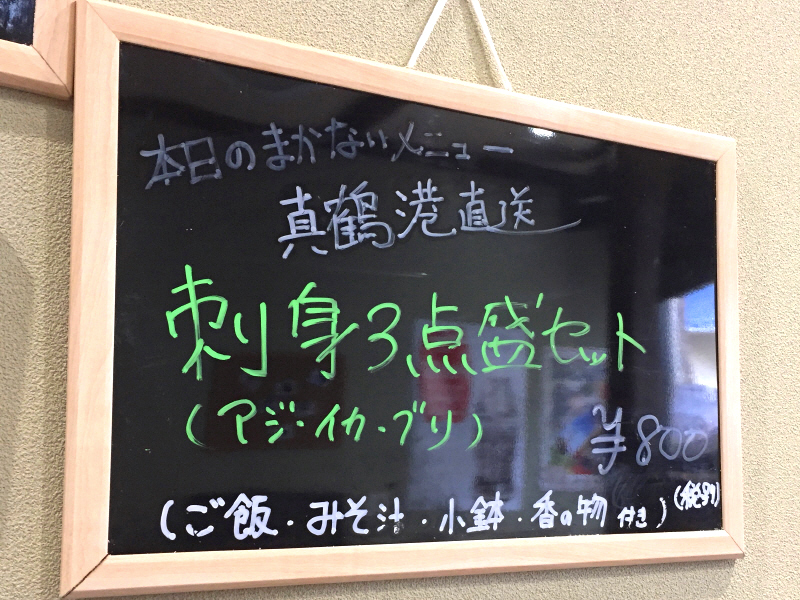 本日のまかないメニュー
真鶴港直送
刺身3点盛セット
(アジ・イカ・ブリ)
¥800
(税別)
(ご飯・みそ汁・小鉢・香の物付き)